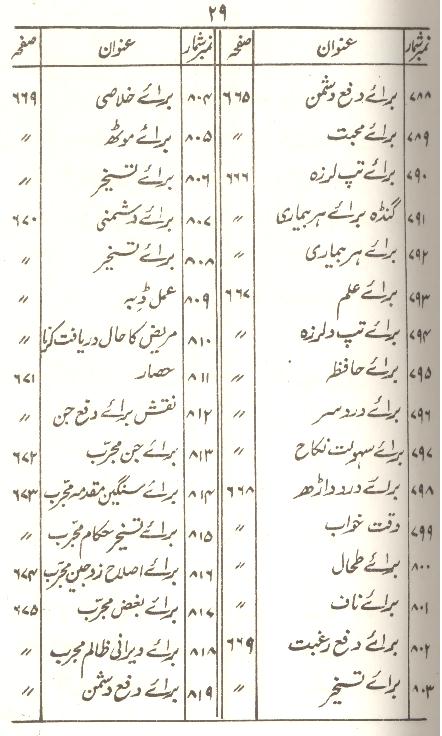 ۲۹
نمبرشمار عنوان صفحہ نمبرشمار عنوان صفحہ
۷۸۸ برائے دفع دشمن ۶۶۵ ۸۰۴ برائے خلاصی ۶۶۹
۷۸۹ برائے محبت 〃 ۸۰۵ برائے موٹھ 〃
۷۹۰ برائے تپ لرزہ ۶۶۶ ۸۰۶ برائے تسخیر 〃
۷۹۱ گنڈہ برائے ہر بیماری 〃 ۸۰۷ برائے دشمنی ۶۷۰
۷۹۲ برائے ہر بیماری 〃 ۸۰۸ برائے تسخیر 〃
۷۹۳ برائے علم ۶۶۷ ۸۰۹ عمل ڈبہ 〃
۷۹۴ برائے تپ و لرزہ 〃 ۸۱۰ مریض کا حال دریافت کرنا 〃
۷۹۵ برائے حافظہ 〃 ۸۱۱ حصار ۶۷۱
۷۹۶ برائے درد سر 〃 ۸۱۲ نقش برائے دفع جن 〃
۷۹۷ برائے سہولت نکاح 〃 ۸۱۳ برائے جن مجرّب ۶۷۲
۷۹۸ برائے درد داڑھ ۶۶۸ ۸۱۴ برائے سنگین مقدمہ مجرّب ۶۷۳
۷۹۹ وقت خواب 〃 ۸۱۵ برائے تسخیر حکام مجرّب 〃
۸۰۰ برائے طحال 〃 ۸۱۶ برائے اصلاح زوجین مجرّب ۶۷۴
۸۰۱ برائے ناف 〃 ۸۱۷ برائے بغض مجرّب ۶۷۵
۸۰۲ برائے دفع رغبت ۶۶۹ ۸۱۸ برائے ویرانی ظالم مجرب 〃
۸۰۳ برائے تسخیر 〃 ۸۱۹ برائے دفع دشمن 〃